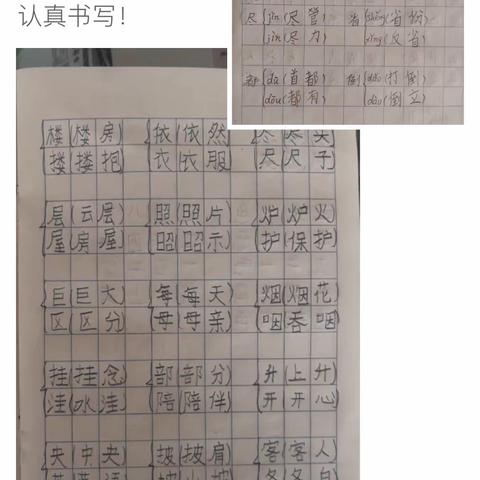 认真书写！
尽 jǐn(尽管) 省 shěng(省份)
jìn(尽力) xǐng(反省)
都 dū(首都) 倒 dǎo(打倒)
dōu(都有) dào(倒立)
楼(楼房) 依(依然)
搂(搂抱) 衣(衣服) 尺(尺子)
层(云层) 照(照片) 炉(炉火)
屋(房屋) 昭(昭示) 护(保护)
巨(巨大) 每(每天) 烟(烟花)
区(区分) 母(母亲) 咽(吞咽)
挂(挂念) 部(部分) 升(上升)
洼(水洼) 陪(陪伴) 开(开心)
央(中央) 披(披肩) 客(客人)